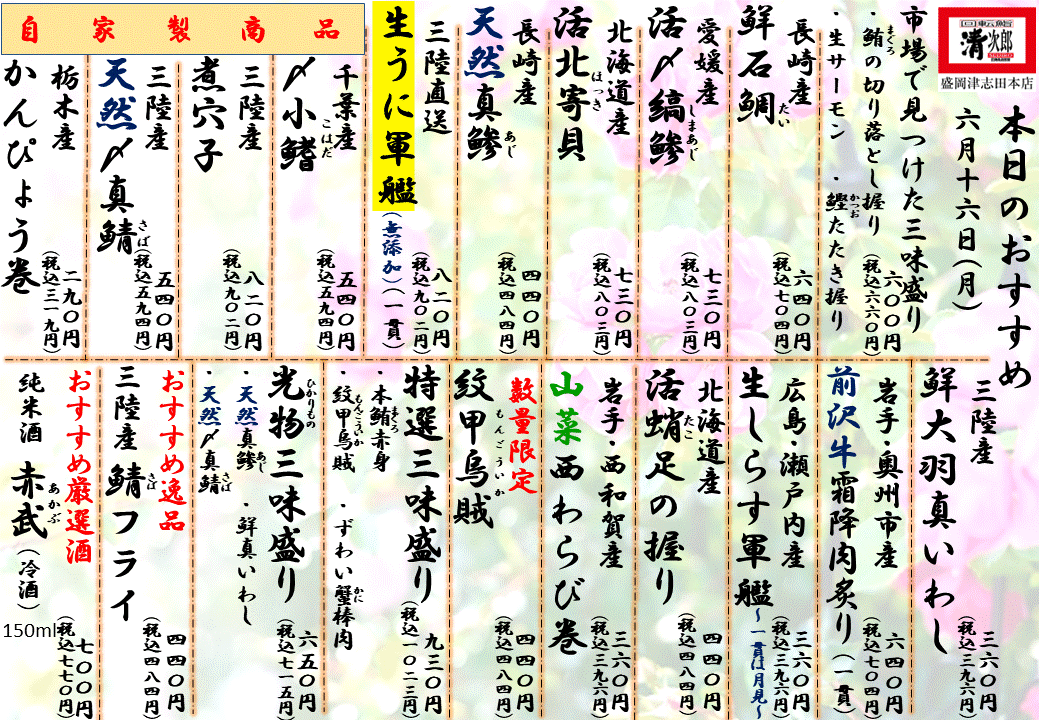 回転鮨
清次郎
盛岡津志田本店
本日のおすすめ
六月十六日(月)
市場で見つけた三味盛り
・鮪の切り落とし握り
まぐろ
・生サーモン ・鰹たたき握り
かつお
六〇〇円
(税込六六〇円)
長崎産
鮮石鯛
たい
六四〇円
(税込七〇四円)
愛媛産
活〆縞鯵
しまあじ
七三〇円
(税込八〇三円)
北海道産
活北寄貝
ほっき
七三〇円
(税込八〇三円)
長崎産
天然真鯵
あじ
四四〇円
(税込四八四円)
三陸直送
生うに軍艦
(無添加)(一貫)
八二〇円
(税込九〇二円)
自家製商品
千葉産
〆小鰭
こはだ
五四〇円
(税込五九四円)
三陸産
煮穴子
八二〇円
(税込九〇二円)
三陸産
天然〆真鯖
さば
五四〇円
(税込五九四円)
栃木産
かんぴょう巻
二九〇円
(税込三一九円)
三陸産
鮮大羽真いわし
三六〇円
(税込三九六円)
岩手・奥州市産
前沢牛霜降肉炙り(一貫)
六四〇円
(税込七〇四円)
広島・瀬戸内産
生しらす軍艦
~一貫は月見~
三六〇円
(税込三九六円)
北海道産
活蛸足の握り
たこ
四四〇円
(税込四八四円)
岩手・西和賀産
山菜西わらび巻
三六〇円
(税込三九六円)
数量限定
紋甲烏賊
もんごういか
四四〇円
(税込四八四円)
特選三味盛り
・本鮪赤身
まぐろ
・紋甲烏賊 ・ずわい蟹棒肉
もんごういか
かに
九三〇円
(税込一〇二三円)
光物三味盛り
ひかりもの
・天然真鯵 ・鮮真いわし
あじ
・天然〆真鯖
さば
六五〇円
(税込七一五円)
おすすめ逸品
三陸産 鯖フライ
さば
四四〇円
(税込四八四円)
おすすめ厳選酒
純米酒 赤武(冷酒)
あかぶ
150ml
七〇〇円
(税込七七〇円)